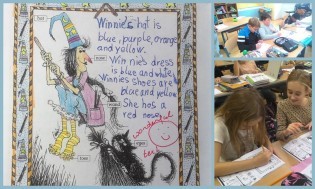 Winnie's hat is
blue, purple, orange
and yellow.
Winnie's dress
is blue and white
Winnie's shoes are
blue and yellow
She has a
red nose.
wonderful